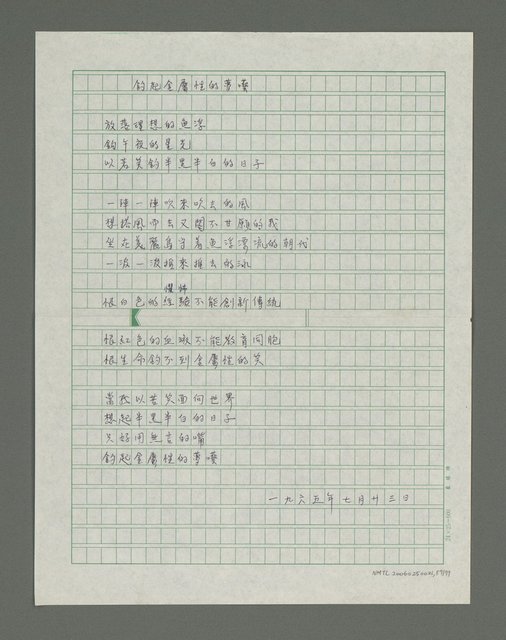 釣起金屬性的夢囈
放落理想的魚浮
釣午夜的星光
以苦笑釣半黑半白的日子
一陣一陣吹來吹去的風
想搭風而去又關不甘願的我
坐在美麗島守著魚浮漂流的朝代
一波一波推來推去的泳
恨白色的經驗不能創新傳統
恨紅色的血液不能教育同胞
恨生命釣不到金屬性的笑
當我以苦笑面向世界
想起半黑半白的日子
只好用無言的嘴
釣起金屬性的夢囈
一九六五年七月廿三日